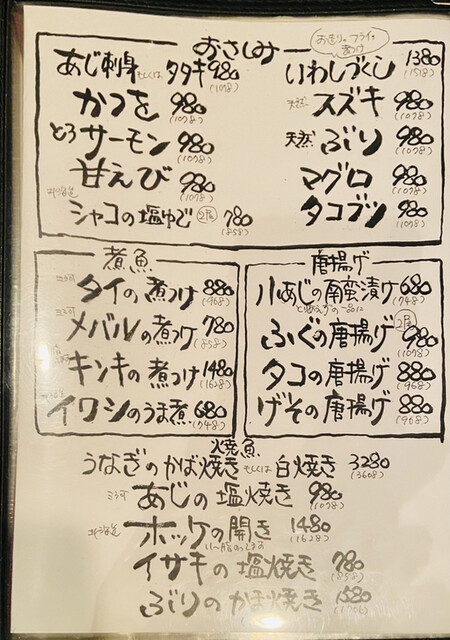 おさしみ
おまりorフライ
あじ刺身 もしくは タタキ 980 (1078)
かつを 980 (1078)
とろサーモン 980 (1078)
甘えび 980 (1078)
北海道 シャコの塩ゆで 2尾 780 (858)
いわしづくし 1380 (1518)
天然 スズキ 980 (1078)
天然 ぶり 980 (1078)
マグロ 980 (1078)
タコブツ 980 (1078)
煮魚
タイの煮つけ 880 (968)
メバルの煮つけ 780 (858)
キンキの煮つけ 1480 (1628)
イワシのうま煮 680 (748)
唐揚げ
小あじの南蛮漬け 680 (748)
ふぐの唐揚げ 2尾 980 (1078)
タコの唐揚げ 880 (968)
げその唐揚げ 880 (968)
焼魚
うなぎのかば焼き もしくは 白焼き 3280 (3608)
あじの塩焼き 980 (1078)
北海道 ホッケの開き 1480 (1628)
い〜脂のってます
イサキの塩焼き 780 (858)
ぶりのかま焼き